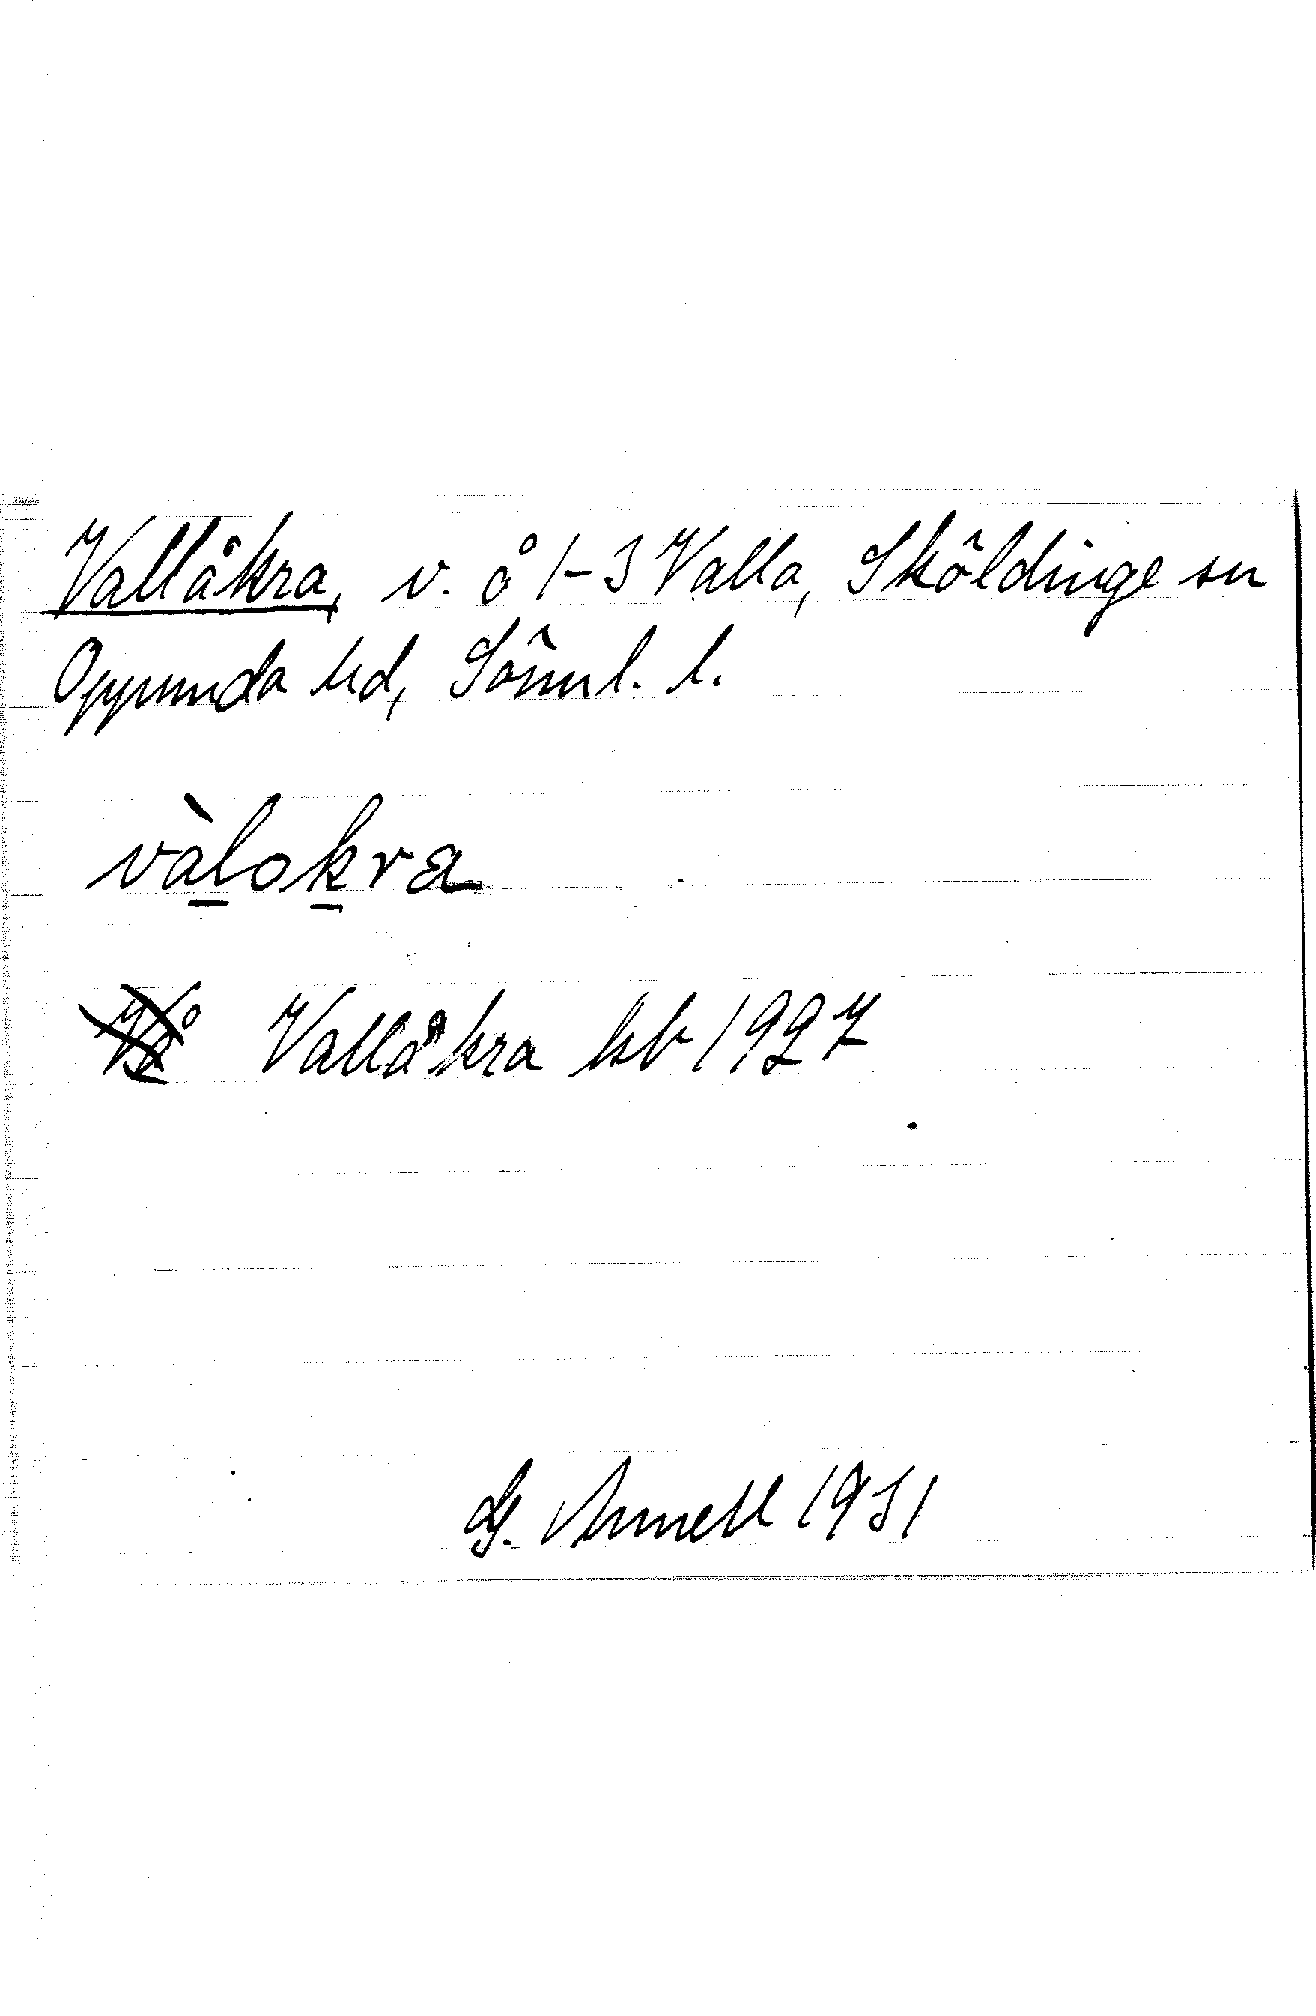 Vallåkra, v. å 1-3 Valla, Sköldinge sn
Oppunda hd, Söml. l.
vàlokra
Vallåkra hb 1927
G. Annell 1931